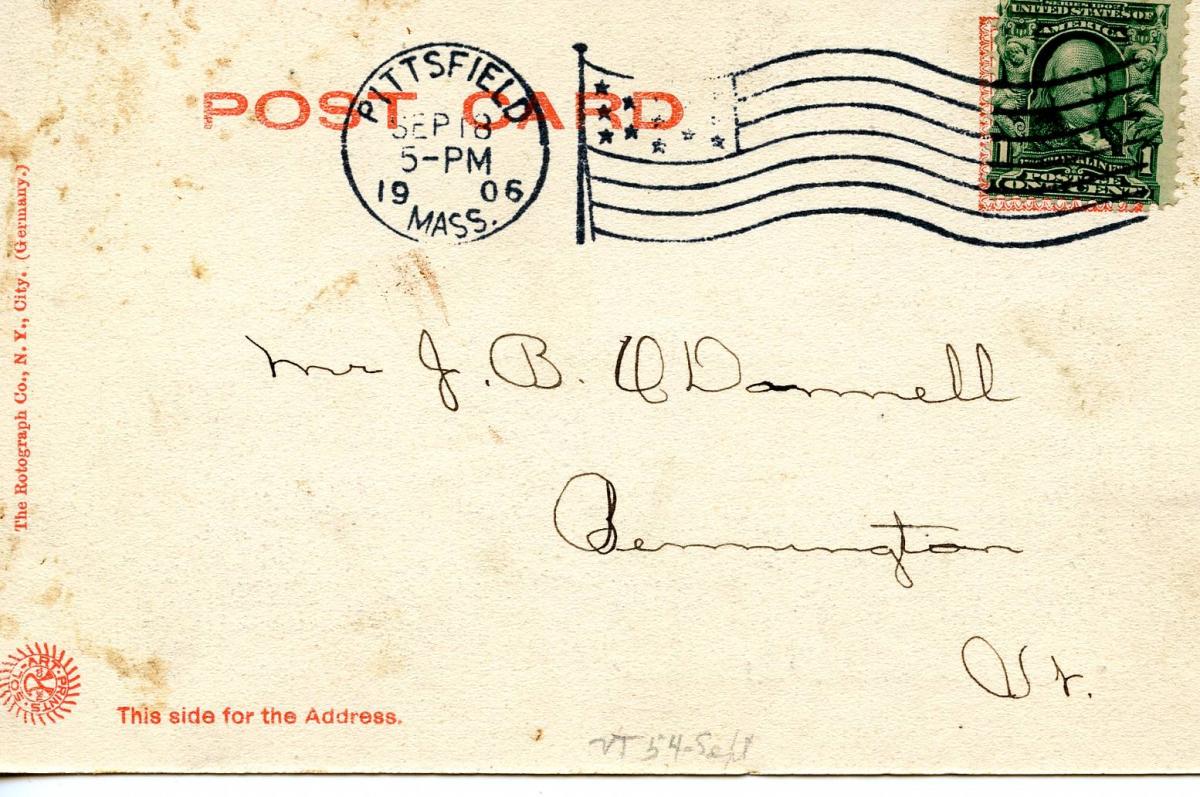 SERIES 1902
UNITED STATES OF
AMERICA
POST CARD
PITTSFIELD
SEP 18
5-PM
19 06
MASS.
1 1
POSTAGE
ONE CENT
The Rotograph Co., N. Y., City. (Germany.)
Mr J. B. O'Donnell
Bennington
Vt.
SOL-ART PRINTS
This side for the Address.
VT 54-Sept